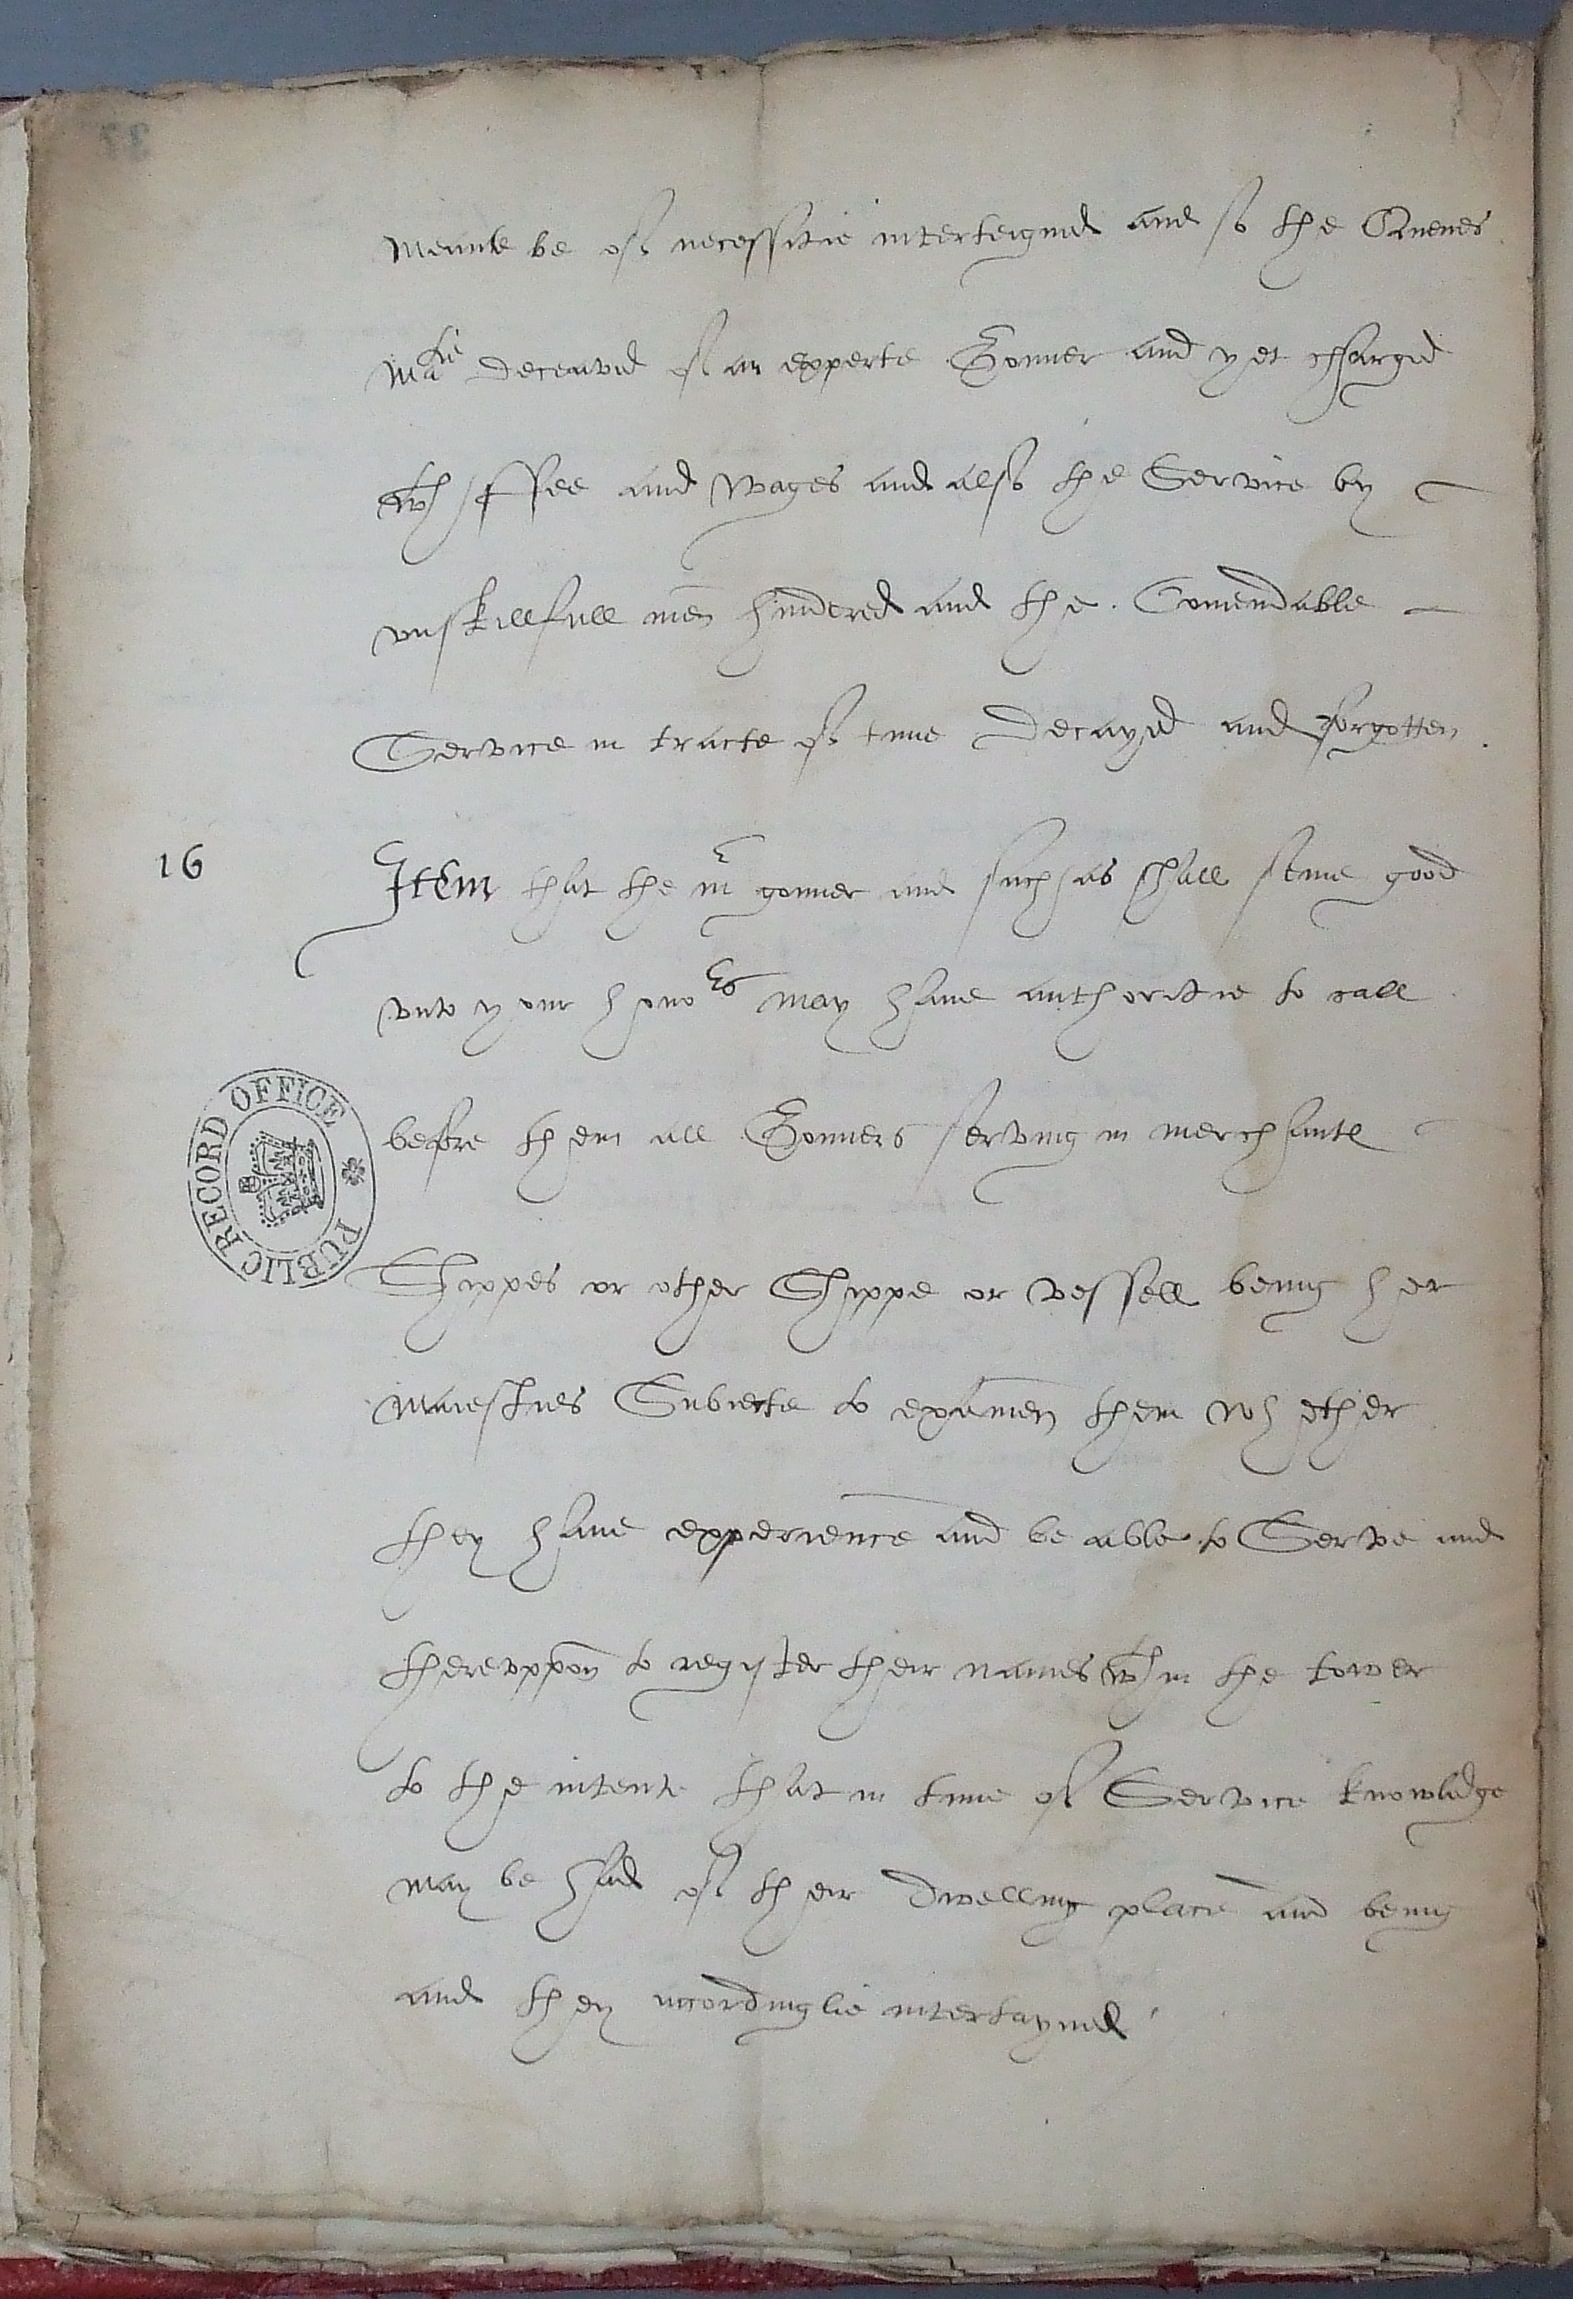 meante be of necessitie interteigned and so the Quenes
Matie deceaved of an experte Gonner and yet chargid
wth ffee and wages and also the Service by
unskillfull men hindered and the Comendable
Service in tracte of time decayed and forgotten.
16 Item that the mr gonner and such as shall seme good
vnto your honors may have authoritie to call
before them all Gonners serving in merchante
Shippes or other Shippe or vessell being her
maiesties Subiecte to examen them whether
they have experience and be able to Serve and
therevppon to register their names wthin the tower
to the intente that in time of Service knowledge
may be had of their dwelling place and being
and they accordinglie intertayned
PUBLIC RECORD OFFICE